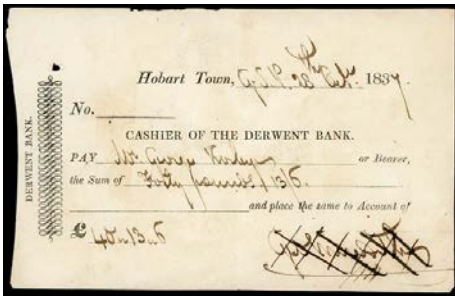 Hobart Town, 28 1837
No.
CASHIER OF THE DERWENT BANK.
PAY Mr. George or Bearer,
the Sum of Forty pounds / 13/6.
and place the same to Account of
£ 40 " 13 " 6
DERWENT BANK.